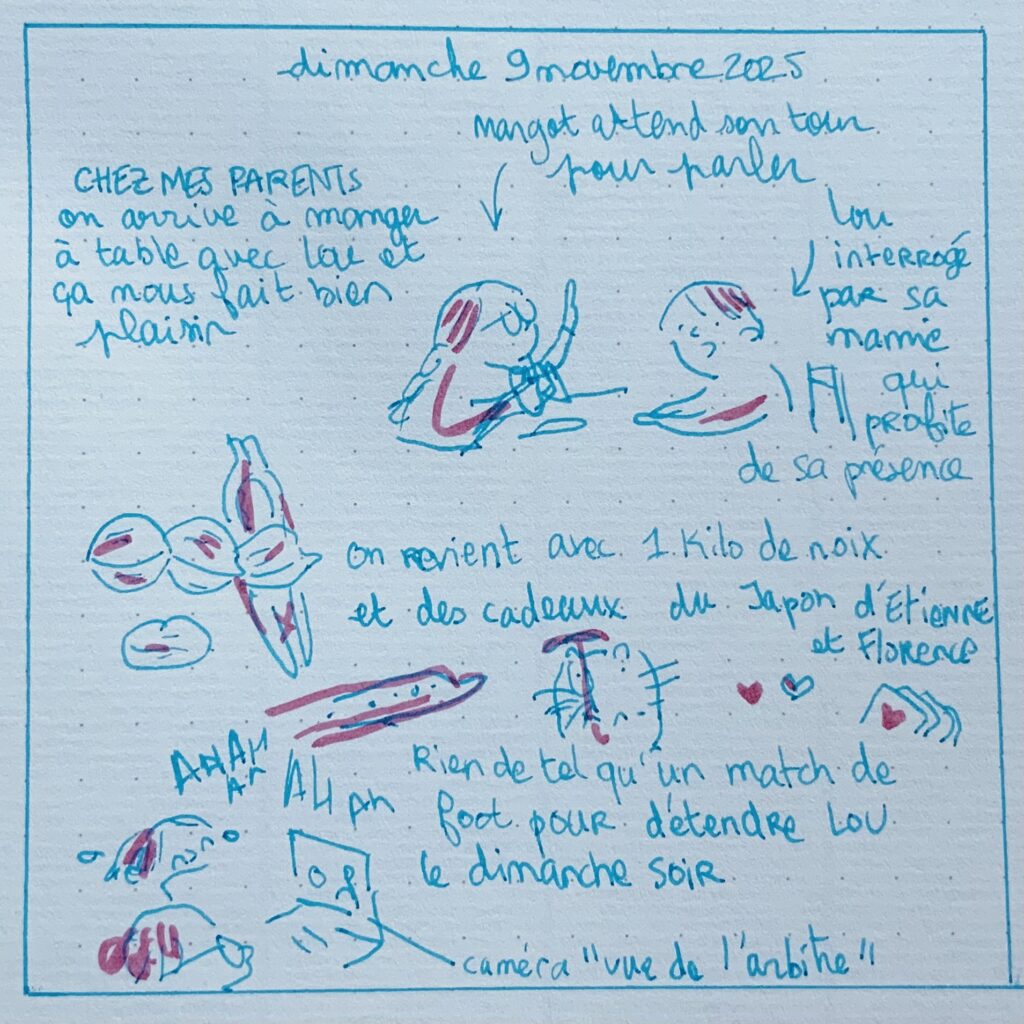 dimanche 9 novembre 2025
margot attend son tour
pour parler
CHEZ MES PARENTS
on arrive à manger
à table avec lou et
ça nous fait bien
plaisir
lou
interrogé
par sa
mamie
qui
profite
de sa présence
on revient avec 1 kilo de noix
et des cadeaux du Japon d'Etienne
et Florence
AHAH
AH
AH AH
Rien de tel qu'un match de
foot pour détendre LOU
le dimanche soir
caméra "vue de l'arbitre"